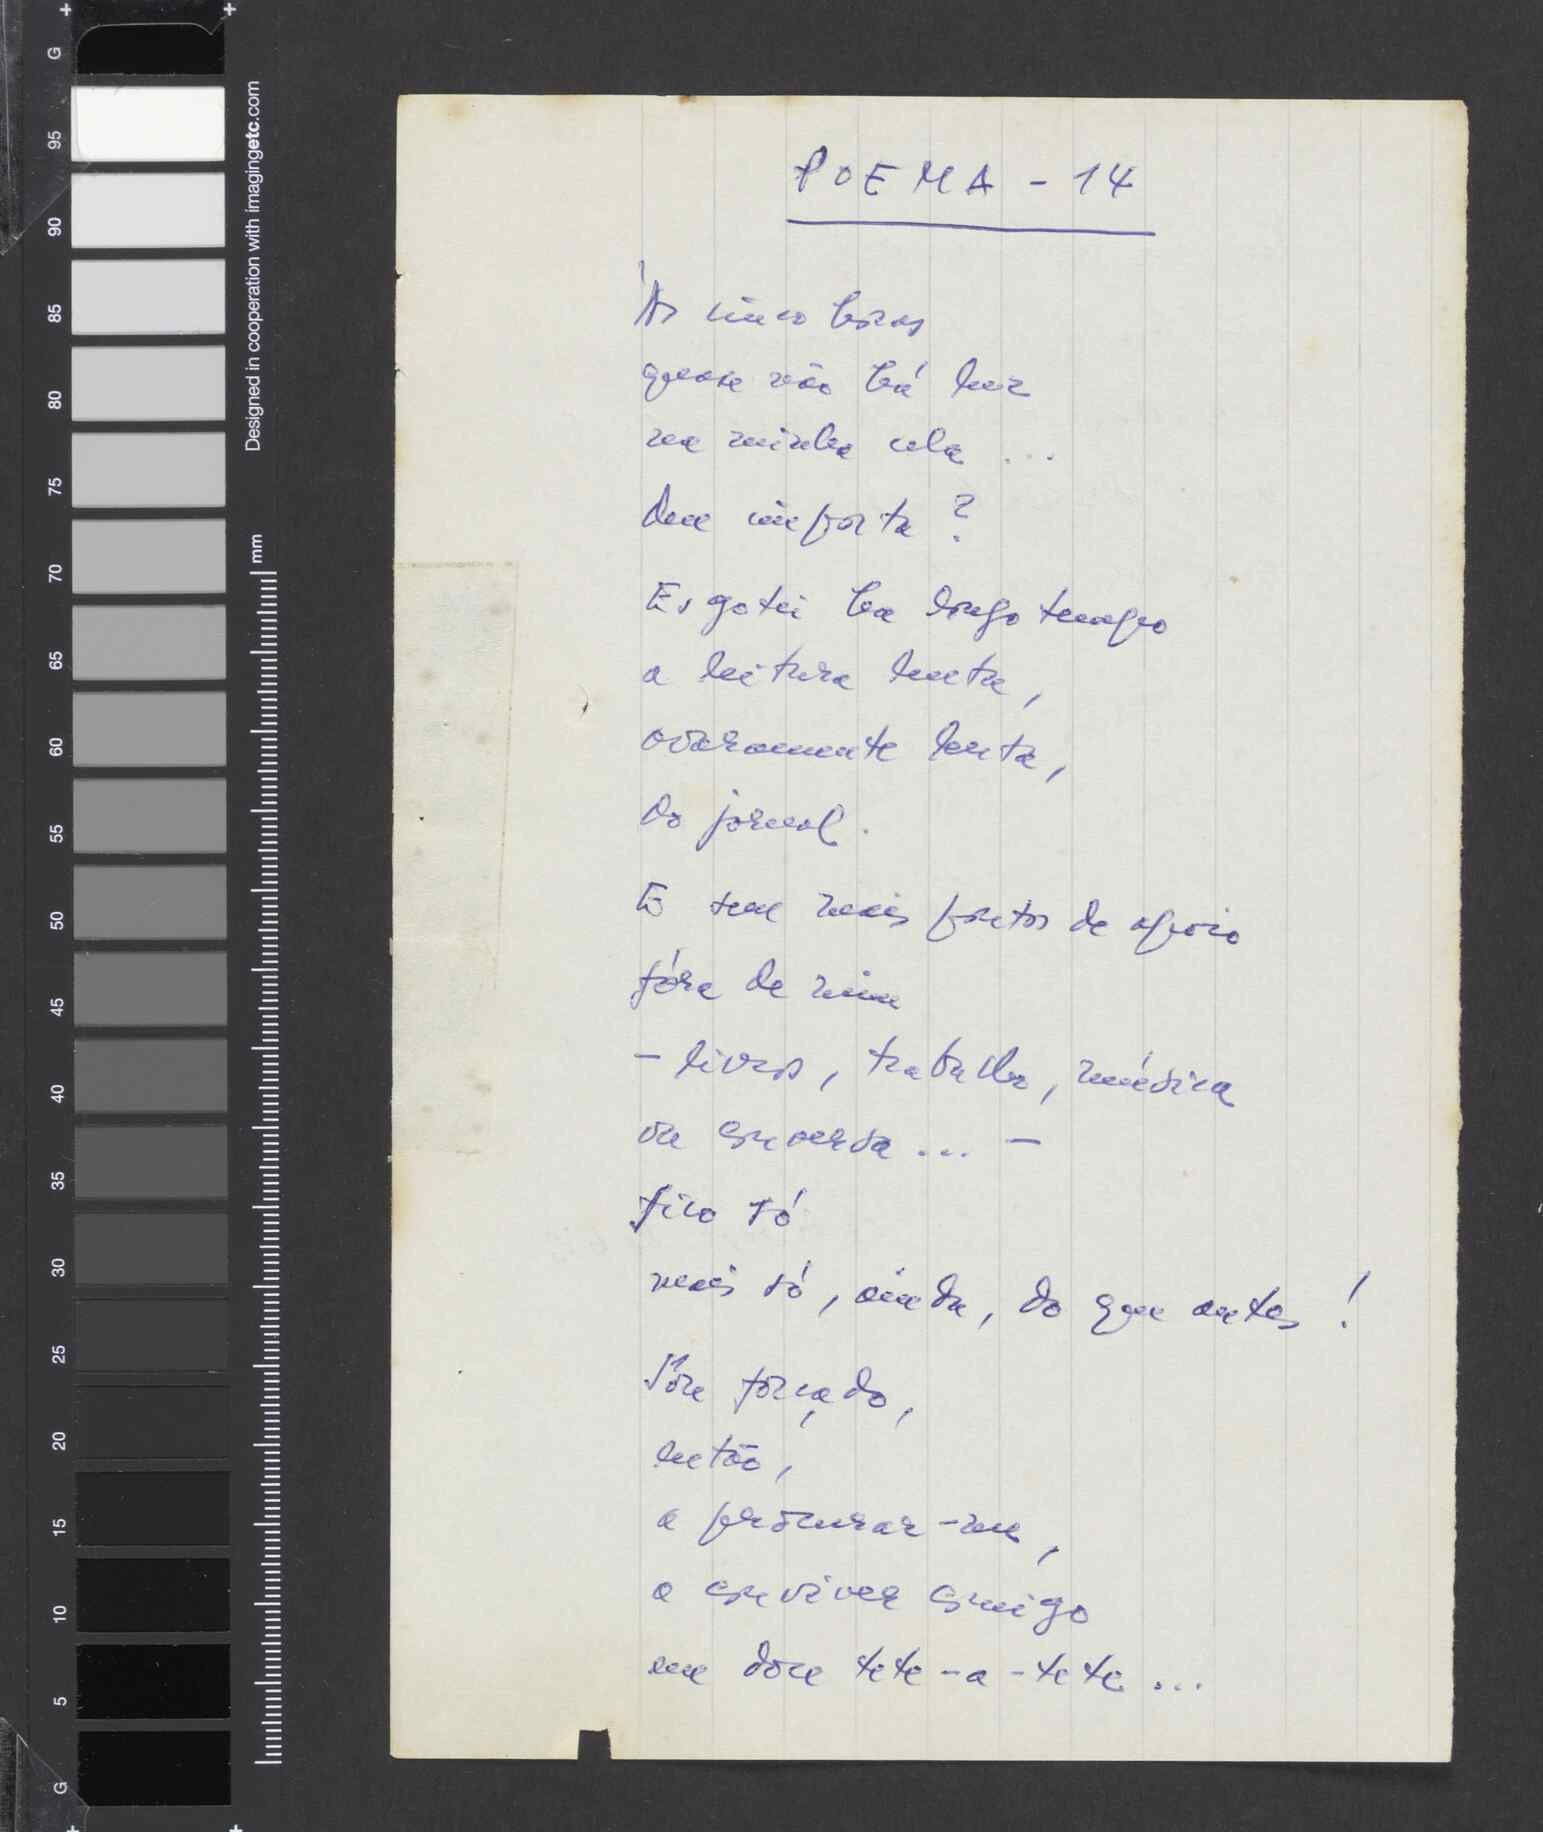 POEMA - 14
Às cinco horas
quase não há luz
na minha cela ...
Que importa?
Esgotei ha longo tempo
a leitura lenta,
avaramente lenta,
do jornal.
E sem mais pontos de apoio
fóra de mim
- livros, trabalho, música
ou conversa ... -
fico só
mais só, ainda, do que antes!
Sou forçado,
então,
a procurar-me,
a conviver comigo
em doce tete-a-tete ...
G
95
90
85
80
75
70
65
60
55
50
45
40
35
30
25
20
15
10
5
G
Designed in cooperation with imagingetc.com
mm